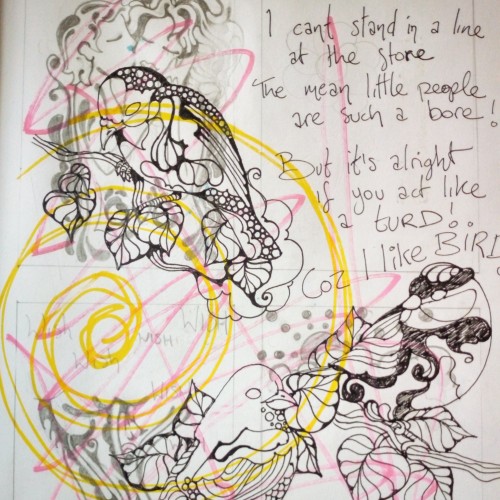 I cant stand in a line
at the store
The mean little people
are such a bore!
But it's alright
if you act like
a turd!..
Coz I like BIRD
Wish
Wish
WISH.
Wish
Wish